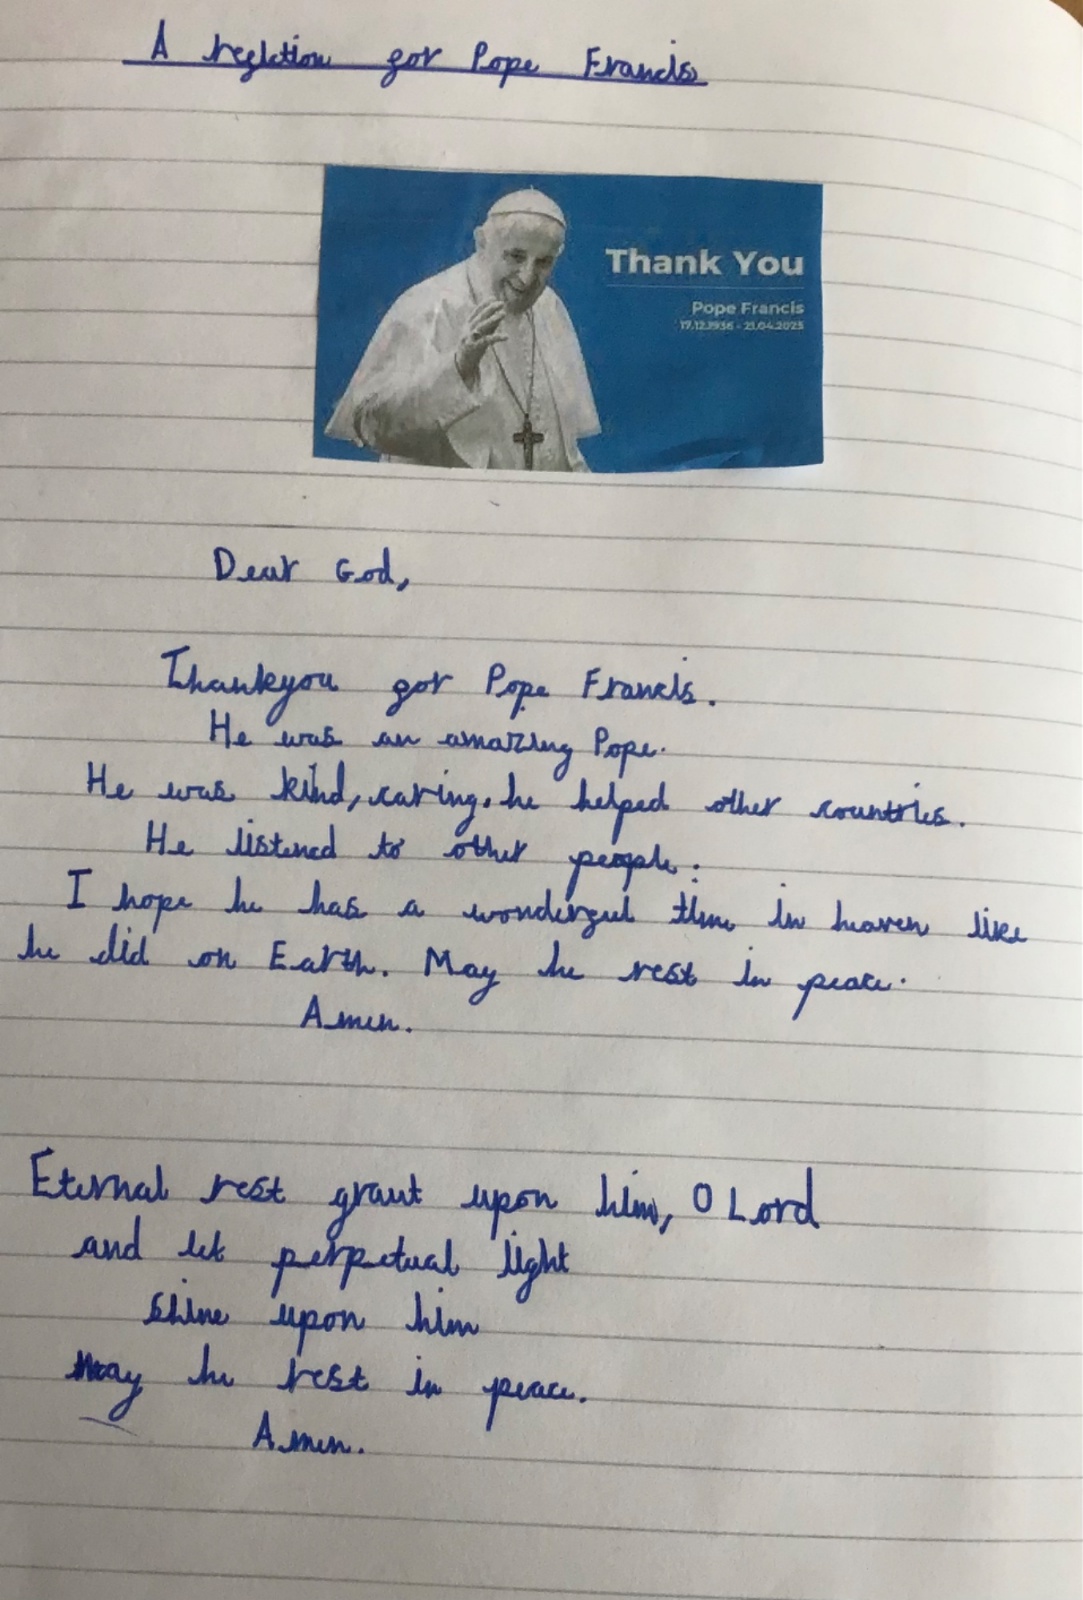 A reflection for Pope Francis
Thank You
Pope Francis
17.12.1936 - 21.04.2025
Dear God,
Thankyou for Pope Francis.
He was an amazing Pope.
He was kind, caring, he helped other countries.
He listened to other people.
I hope he has a wonderful time in heaven like
he did on Earth. May he rest in peace.
Amen.
Eternal rest grant upon him, O Lord
and let perpetual light
shine upon him
May he rest in peace.
Amen.